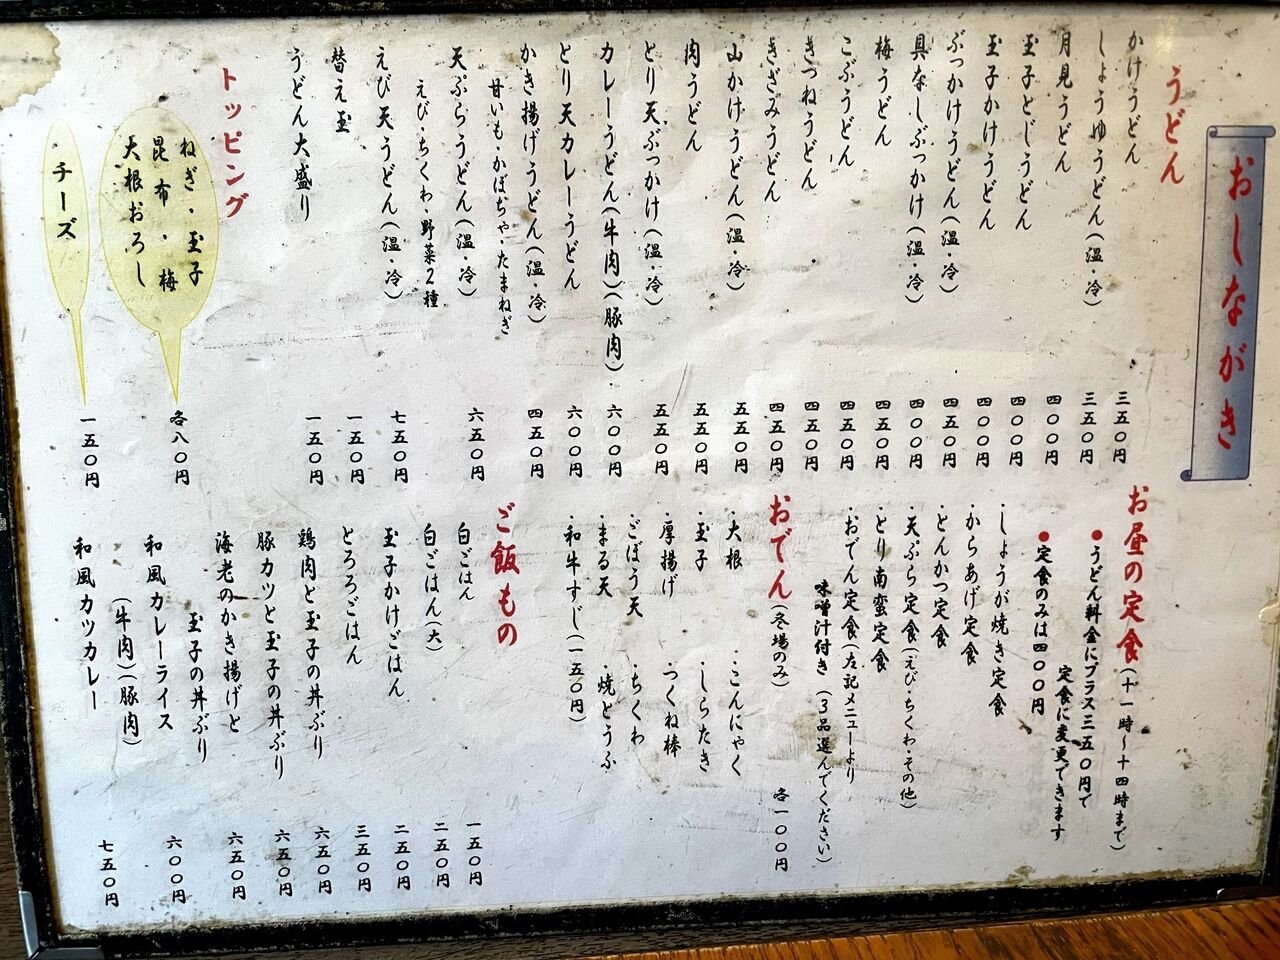 おしながき
うどん
かけうどん 三五〇円
しょうゆうどん(温・冷) 三五〇円
月見うどん 四〇〇円
玉子とじうどん 四〇〇円
玉子かけうどん 四〇〇円
ぶっかけうどん(温・冷) 四五〇円
具なしぶっかけ(温・冷) 四〇〇円
梅うどん 四五〇円
こぶうどん 四五〇円
きつねうどん 四五〇円
きざみうどん 四五〇円
山かけうどん(温・冷) 五五〇円
肉うどん 五五〇円
とり天ぶっかけ(温・冷) 五五〇円
カレーうどん(牛肉)(豚肉) 六〇〇円
とり天カレーうどん 六〇〇円
かき揚げうどん(温・冷) 四五〇円
甘いも・かぼちゃ・たまねぎ
天ぷらうどん(温・冷) 六五〇円
えび・ちくわ・野菜2種
えび天うどん(温・冷) 七五〇円
替え玉 一五〇円
うどん大盛り 一五〇円
トッピング
ねぎ・玉子
昆布・梅
大根おろし
各八〇円
チーズ
一五〇円
お昼の定食(十一時〜十四時まで)
●うどん料金にプラス三五〇円で
定食に変更できます
●定食のみは四〇〇円
・しょうが焼き定食
・からあげ定食
・とんかつ定食
・天ぷら定食(えび・ちくわ・その他)
・とり南蛮定食
・おでん定食(左記メニューより
味噌汁付き (3品選んでください)
おでん(冬場のみ) 各一〇〇円
・大根 ・こんにゃく
・玉子 ・しらたき
・厚揚げ つくね棒
・ごぼう天 ・ちくわ
・まる天 ・焼とうふ
・和牛すじ(一五〇円)
ご飯もの
白ごはん 一五〇円
白ごはん(大) 二五〇円
玉子かけごはん 二五〇円
とろろごはん 三五〇円
鶏肉と玉子の丼ぶり 六五〇円
豚カツと玉子の丼ぶり 六五〇円
海老のかき揚げと 六五〇円
玉子の丼ぶり
和風カレーライス 六〇〇円
(牛肉)(豚肉)
和風カツカレー 七五〇円